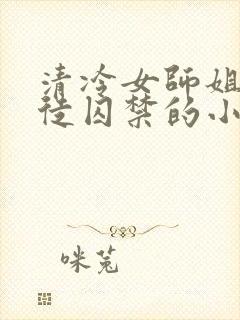 清冷女師姐
徒囚禁的小
咪菟